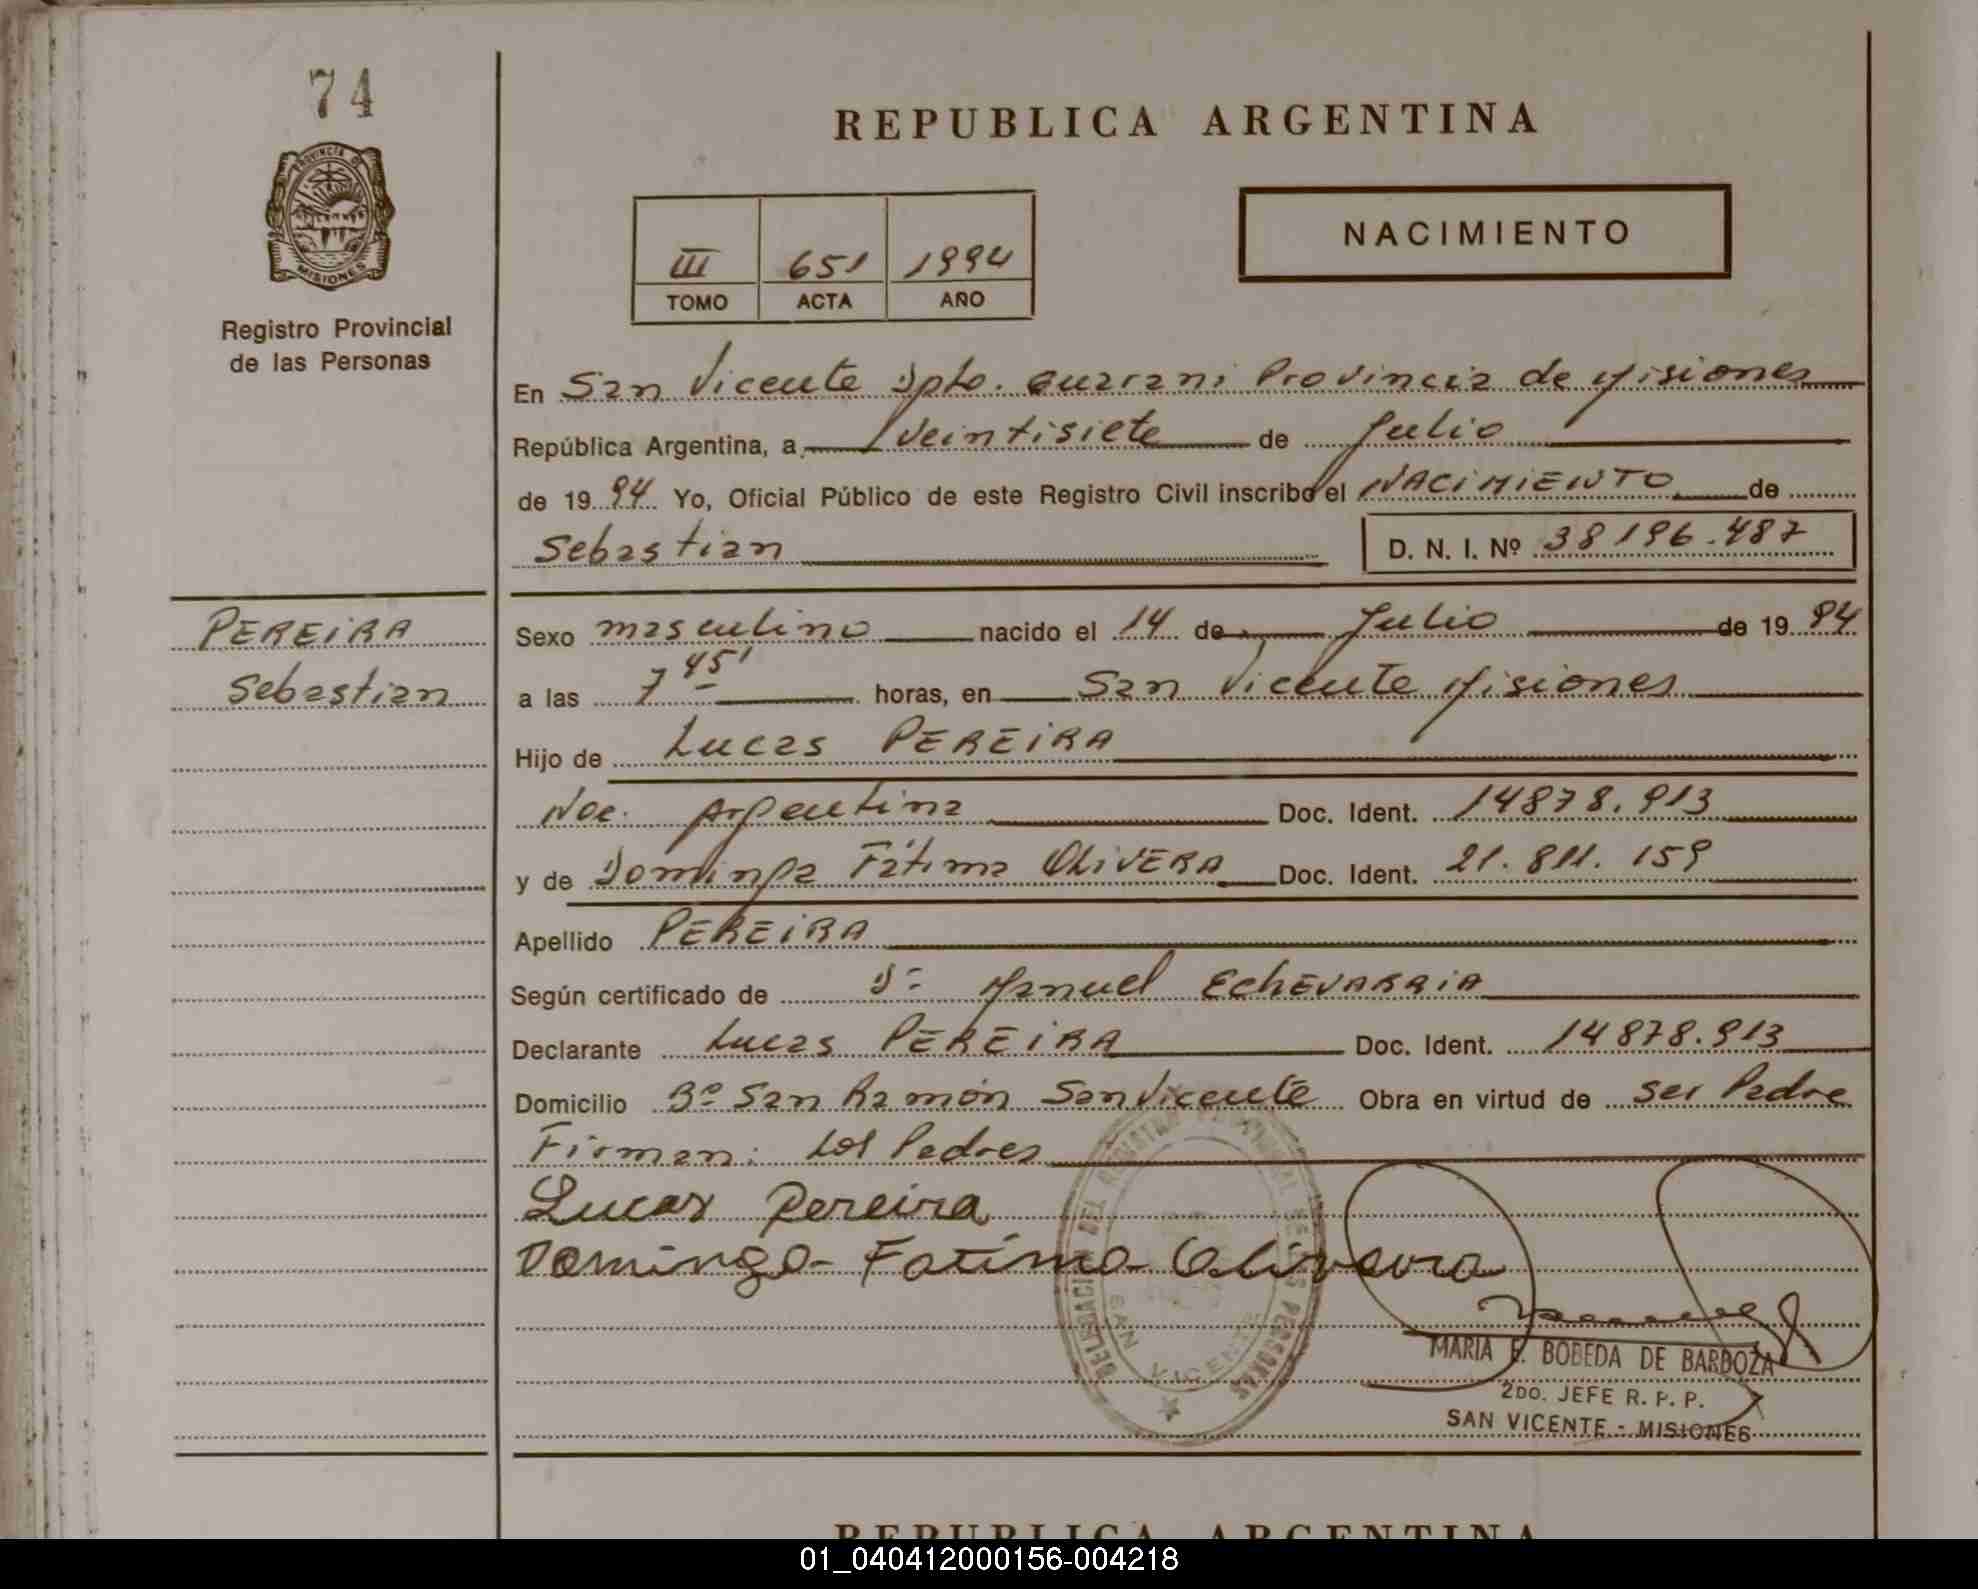 74
PROVINCIA DE
MISIONES
Registro Provincial
de las Personas
REPUBLICA ARGENTINA
III 651 1994
TOMO ACTA AÑO
NACIMIENTO
En San Vicente Dpto. Guarani Provincia de Misiones
República Argentina, a veintisiete de Julio
de 19 94 Yo, Oficial Público de este Registro Civil inscribo el NACIMIENTO de
Sebastian D. N. I. Nº 38196.487
PEREIRA
Sebastian
Sexo masculino nacido el 14 de Julio de 19 94
a las 7 45' horas, en San Vicente Misiones
Hijo de Lucas PEREIRA
Nac. Argentina Doc. Ident. 14878.913
y de Dominga Fátima OLIVERA Doc. Ident. 21.811.159
Apellido PEREIRA
Según certificado de Dr Manuel ECHEVARRIA
Declarante Lucas PEREIRA Doc. Ident. 14878.913
Domicilio Bº San Ramón San Vicente Obra en virtud de ser Padre
Firman: Los Padres
Lucas Pereira
Dominga Fatima Olivera
DELEGACION DEL REGISTRO PROVINCIAL DE LAS PERSONAS
SAN VICENTE
MARIA E. BOBEDA DE BARBOZA
2DO. JEFE R. P. P.
SAN VICENTE - MISIONES
REPUBLICA ARGENTINA
01_040412000156-004218